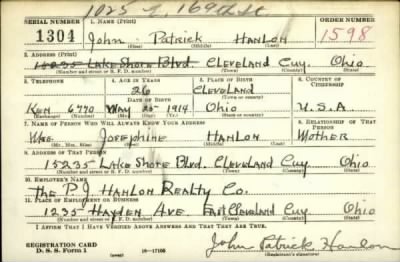 1025 E. 169th St
SERIAL NUMBER 1. NAME (Print) ORDER NUMBER
1304 John Patrick Hanlon 1598
(First) (Middle) (Last)
2. ADDRESS (Print)
15235 Lake Shore Blvd. Cleveland Cuy. Ohio
(Number and street or R. F. D. number) (Town) (County) (State)
3. TELEPHONE 4. AGE IN YEARS 5. PLACE OF BIRTH 6. COUNTRY OF CITIZENSHIP
26 Cleveland
DATE OF BIRTH (Town or county)
Ken 6770 May 20 1914 Ohio U.S.A
(Exchange) (Number) (Mo.) (Day) (Yr.) (State or country)
7. NAME OF PERSON WHO WILL ALWAYS KNOW YOUR ADDRESS 8. RELATIONSHIP OF THAT PERSON
Mrs. Josephine Hanlon Mother
(Mr., Mrs., Miss) (First) (Middle) (Last)
9. ADDRESS OF THAT PERSON
15235 Lake Shore Blvd. Cleveland Cuy Ohio
(Number and street or R. F. D. number) (Town) (County) (State)
10. EMPLOYER'S NAME
The P.J Hanlon Realty Co.
11. PLACE OF EMPLOYMENT OR BUSINESS
1235 Hayden Ave. East Cleveland Cuy Ohio
(Number and street or R. F. D. number) (Town) (County) (State)
I AFFIRM THAT I HAVE VERIFIED ABOVE ANSWERS AND THAT THEY ARE TRUE.
REGISTRATION CARD
D. S. S. Form 1 16—17105 John Patrick Hanlon
(Registrant's signature)